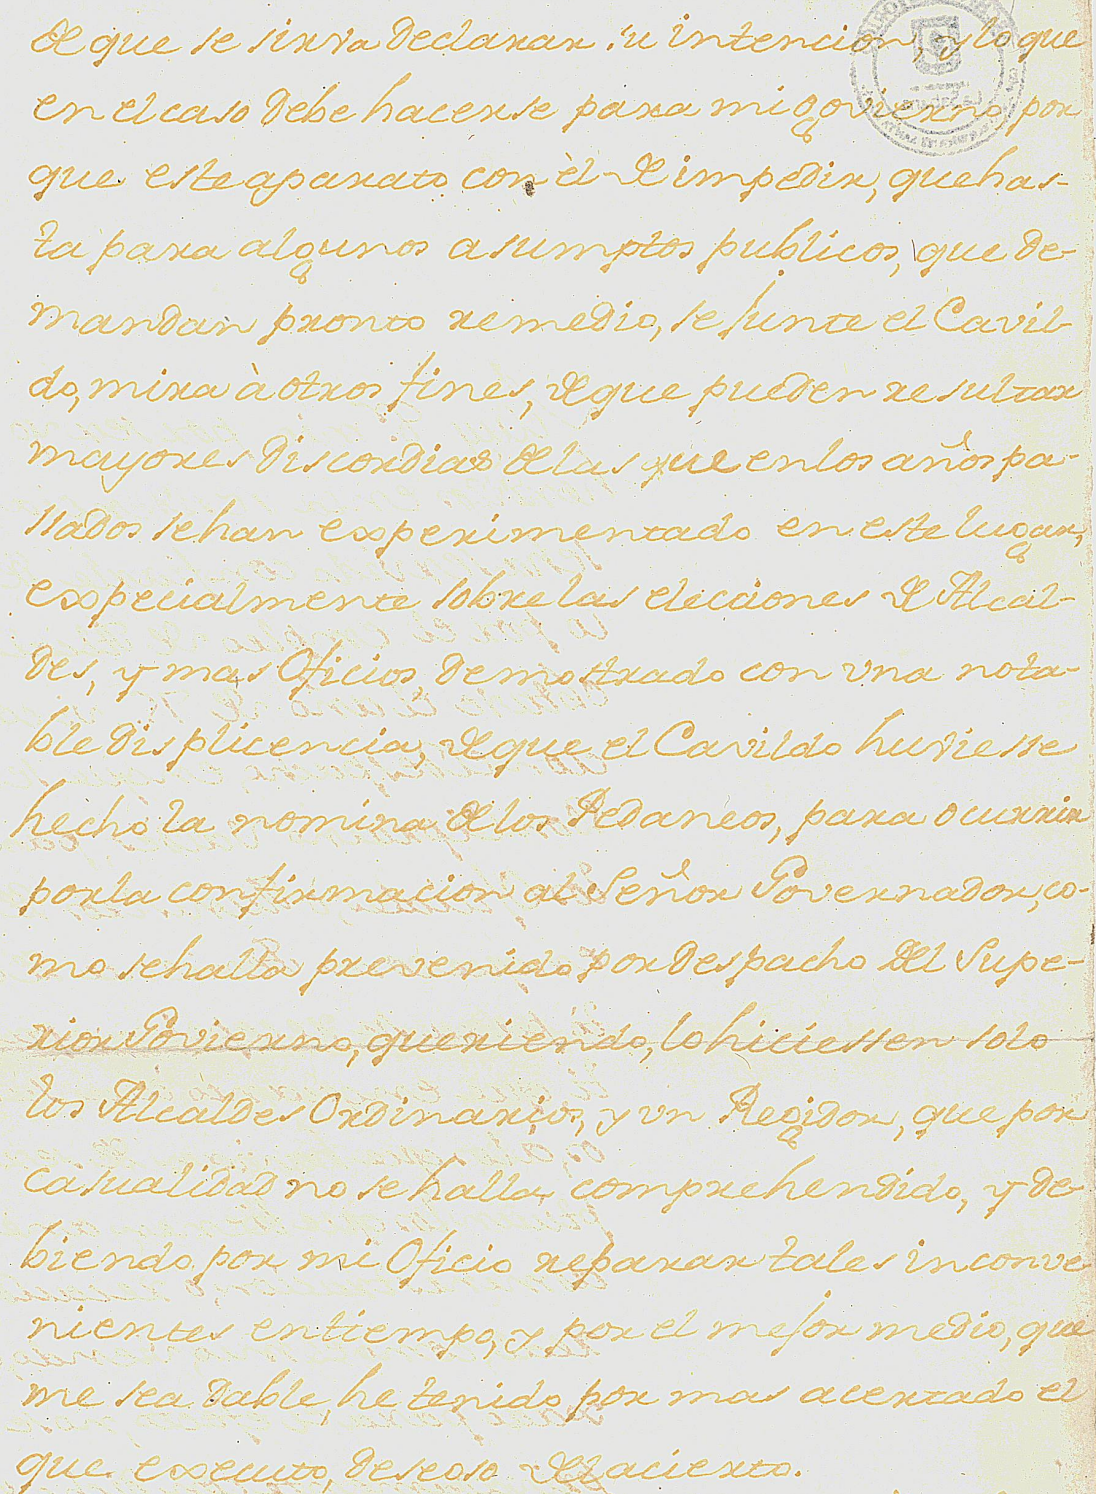 de que se sirva declarar su intencion, y lo que
en el caso debe hacerse para mi govierno, por
que este aparato con èl de impedir, que has-
ta para algunos asumptos publicos, que de-
mandan pronto remedio, se junte el Cavil-
do, mira à otros fines, de que pueden resultar
mayores discordias de las que en los años pa-
ssados se han experimentado en este lugar,
expecialmente sobre las elecciones de Alcal-
des, y mas Oficios, demostrado con vna nota-
ble displicencia, de que el Cavildo huviesse
hecho la nomina de los Pedaneos, para ocurrir
por la confirmacion al Señor Governador, co-
mo se halla prevenido por despacho del Supe-
rior Govierno, queriendo, lo hiciessen solo
los Alcaldes Ordinarios, y vn Regidor, que por
casualidad no se halla comprehendido, y de-
biendo por mi Oficio reparar tales inconve-
nientes en tiempo, y por el mejor medio, que
me sea dable, he tenido por mas acertado el
que executo, deseoso del acierto.